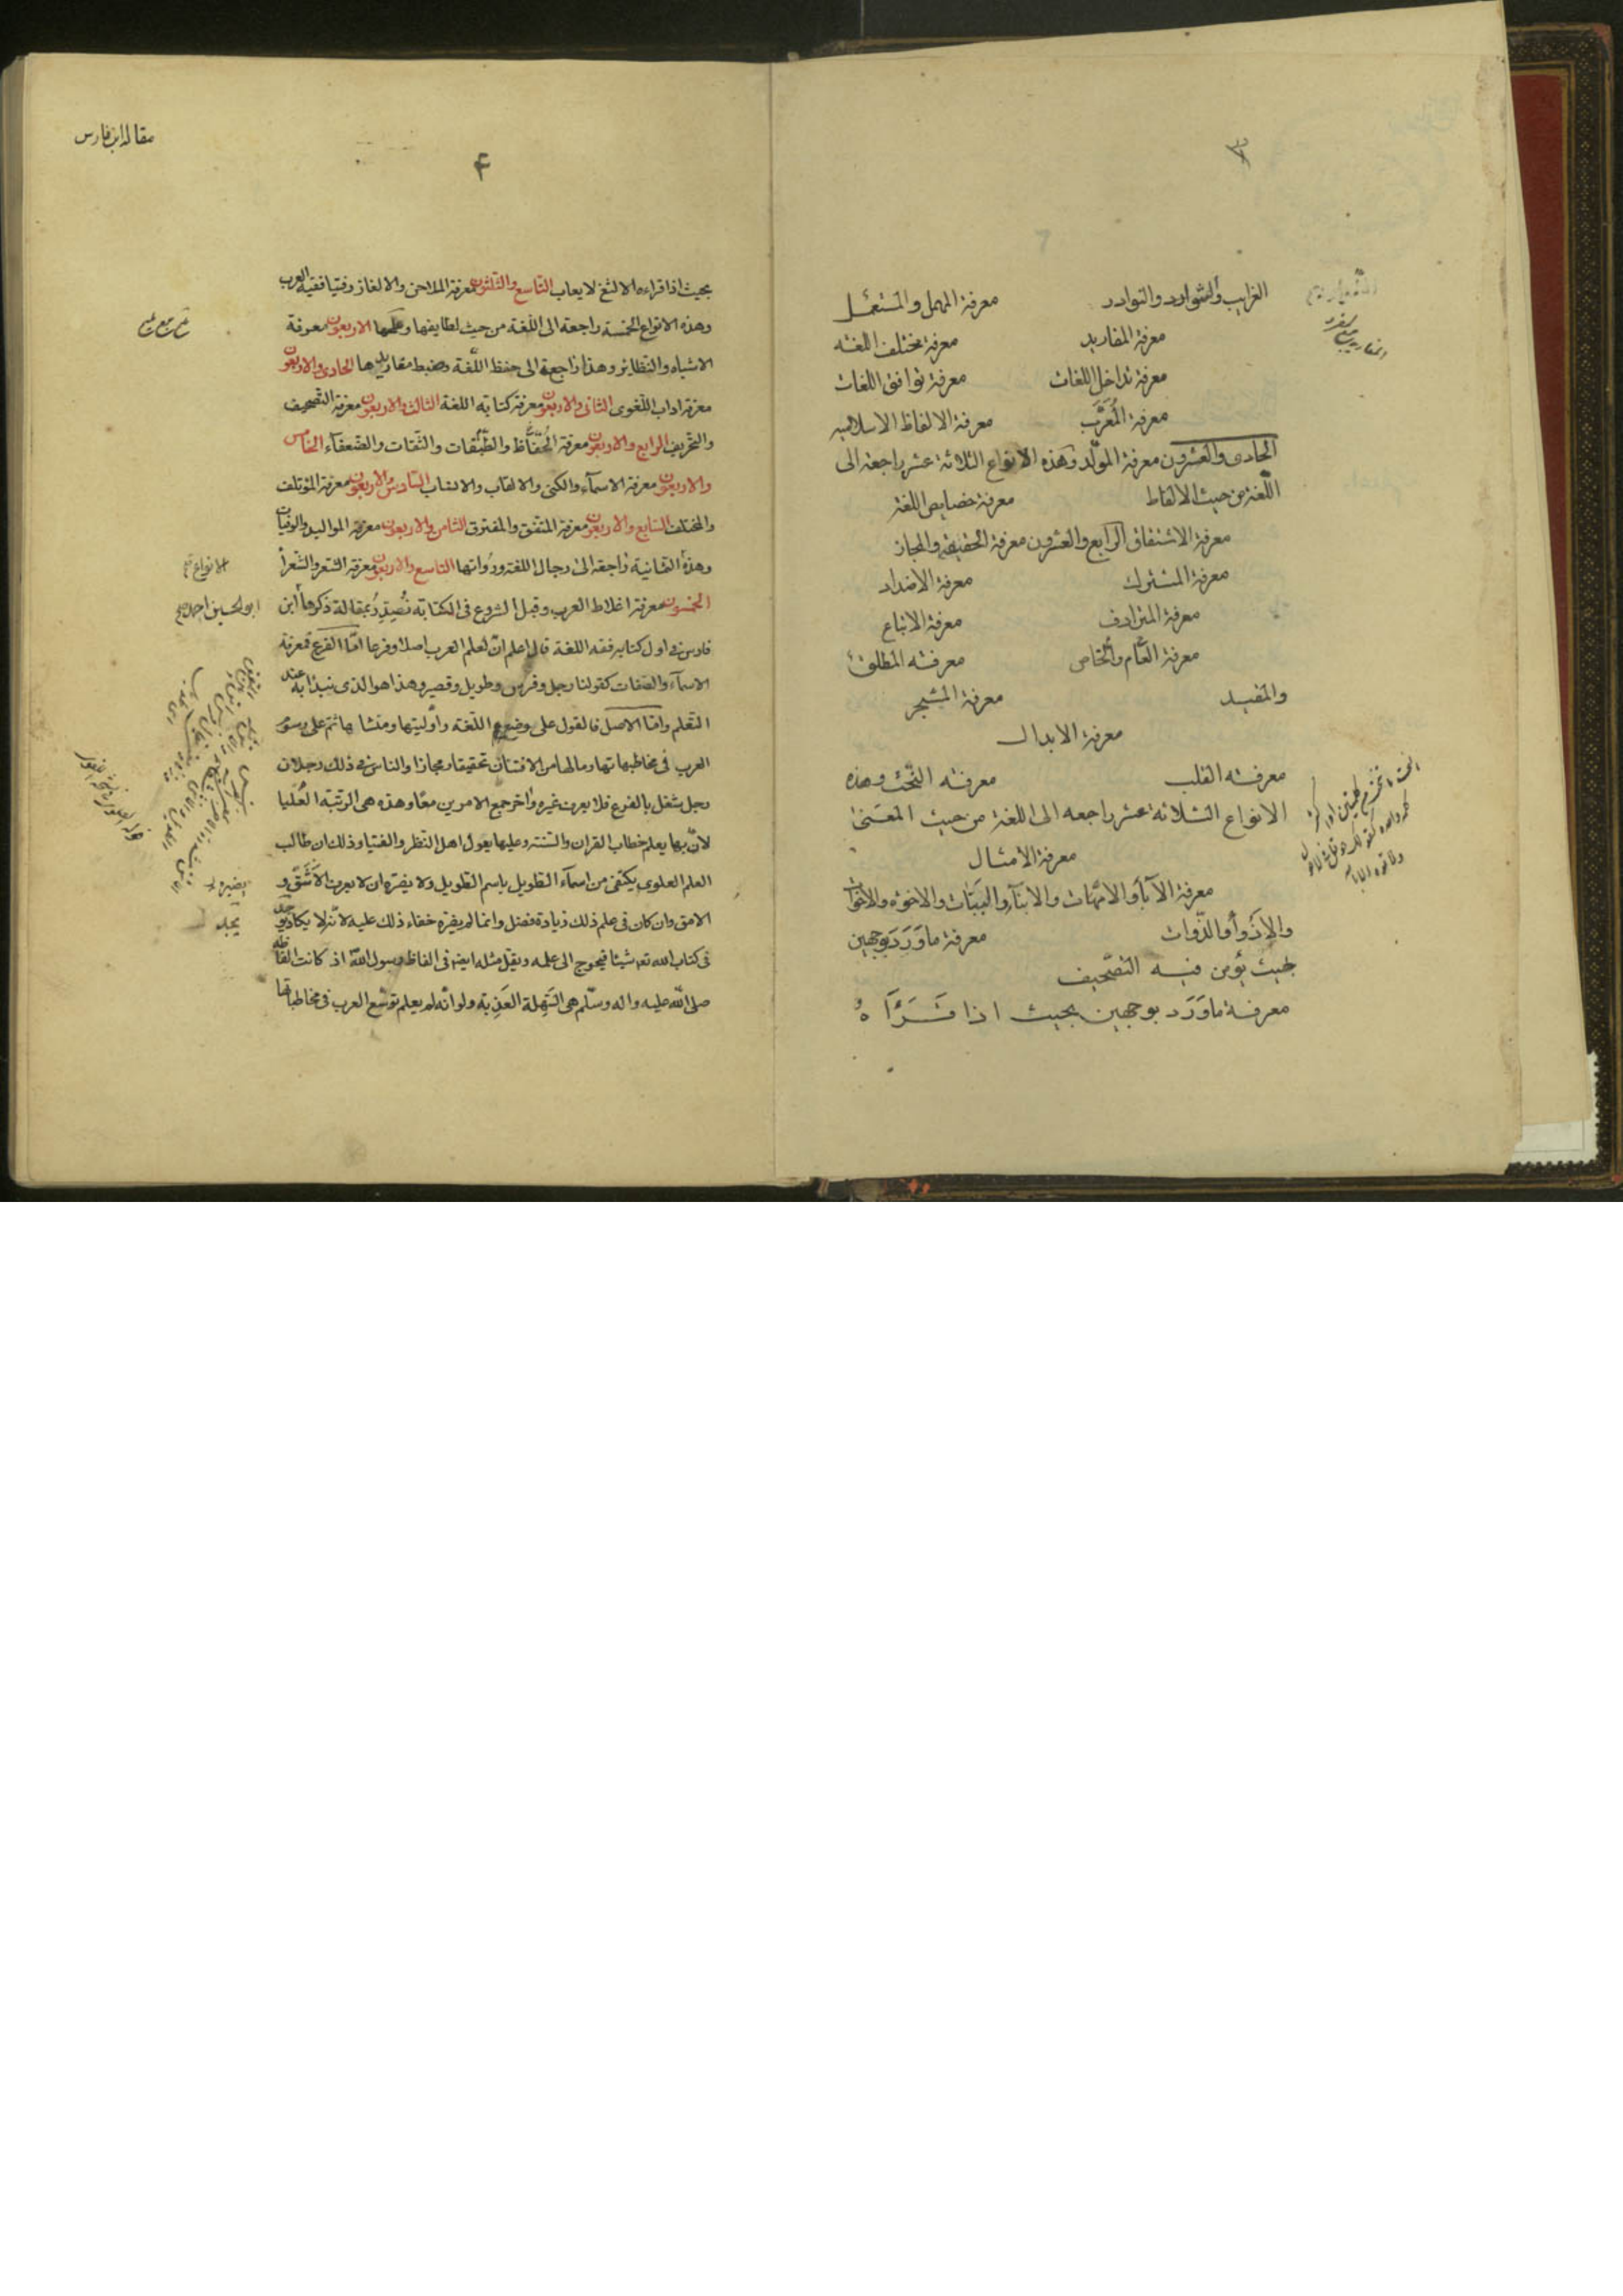 الغرايب والشوارد والنوادر معرفة المهمل والمستعمل
معرفة المفاريد معرفة مختلف اللغة
معرفة تداخل اللغات معرفة توافق اللغات
معرفة المُعَرَّب معرفة الالفاظ الاسلامية
الحادى والعشرون معرفة المولّد وهذه الانواع الثلاثة عشر راجعة الى
اللّغة من حيث الالفاظ معرفة خصايص اللغة
معرفة الاشتقاق الرابع والعشرون معرفة الحقيقة والمجاز
معرفة المشترك معرفة الاضداد
معرفة المترادف معرفة الاتباع
معرفة العّام والخاص معرفة المطلق
والمقيد معرفة المشجر
معرفة الابدال
معرفة القلب معرفة النّحت وهذه
الانواع الثلاثة عشر راجعه الى اللغة من حيث المعنىٰ
معرفة الامثال
معرفة الآباء والامّهات والابناء والبنات والاخوة والاخوات
والاذواء والذّوات معرفة ماوَرَدَ بوجهين
بحيث يؤمن فيه التصحيف
معرفة ماوَرَد بوجهين بحيث اذا قَرَأَهُ
مقاله ابن فارس
۴
بحيث اذا قراءه الالثغ لا يعاب التاسع والثلثون معرفة الملاحن والالغاز وفتيا فقيه العرب
وهذه الانواع الخمسة راجعة الى اللّغة من حيث لطايفها وملحها الاربعون معرفة
الاشباه والنظائر وهذا راجعة الى حفظ اللّغة وضبط مفاريدها الحادى والاربعون
معرفة اداب اللّغوى الثانى والاربعون معرفة كتابة اللغة الثالث والاربعون معرفة التّصحيف
والتحريف الرابع والاربعون معرفة الحُفّاظ والطّبقات والثّقات والضّعفآء الخامس
والاربعون معرفة الاسمآء والكنى والالقاب والانساب السّادس والاربعون معرفة المؤتلف
والمختلف السّابع والاربعون معرفة المتّفق والمفترق الثامن والاربعون معرفة المواليد والوفيات
وهذه الثمانية راجعة الى رجال اللغة ورُواتها التاسع والاربعون معرفة الشعر والشّعرأ
الخمسون معرفة اغلاط العرب وقبل الشروع فى الكتابة نُصَدِّرُ بمقالة ذكرها ابن
فارس فى اول كتابه فقه اللغة قال اعلم انّ لعلم العرب اصلا وفرعا امّا الفرع فمعرفة
الاسمآء والصّفات كقولنا رجل وفرس وطويل وقصير وهذا هو الذى نبدأ به عند
التّعلم وامّا الاصل فالقول على موضوع اللّغة واوّليتها ومنشاها ثم على رسوم
العرب فى مخاطبهاتها وما لها من الافتنان تحقيقا ومجازا والناس فى ذلك رجلان
رجل شغل بالفرع فلا يعرف غيره واخر جمع الامرين معًا وهذه هى الرّتبة العُليا
لانّ بها يعلم خطاب القران والسّنة وعليها يعول اهل النّظر والفتيا وذلك ان طالب
العلم العلوى يكتفى من اسمآء الطويل باسم الطويل ولا يضرّه ان لا يعرف الاشَقّ و
الامق وان كان فى علم ذلك زيادة فضل وانما لم يضره خفاء ذلك عليه لانّه لا يكاد يجد
فى كتاب الله تعه شيئا فيحوج الى علمه ويقل مثله ايضه فى الفاظ رسول اللّه اذ كانت الفاظه
صلى اللّه عليه واله وسلّم هى السَّهلة العَذبة ولو انّه لم يعلم توسّع العرب فى مخاطباتها
الانواع
ابو الحسين احمد
يضيره
يجد